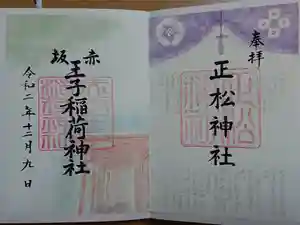 奉拝
正松神社
赤坂
王子稲荷神社
令和二年十二月九日